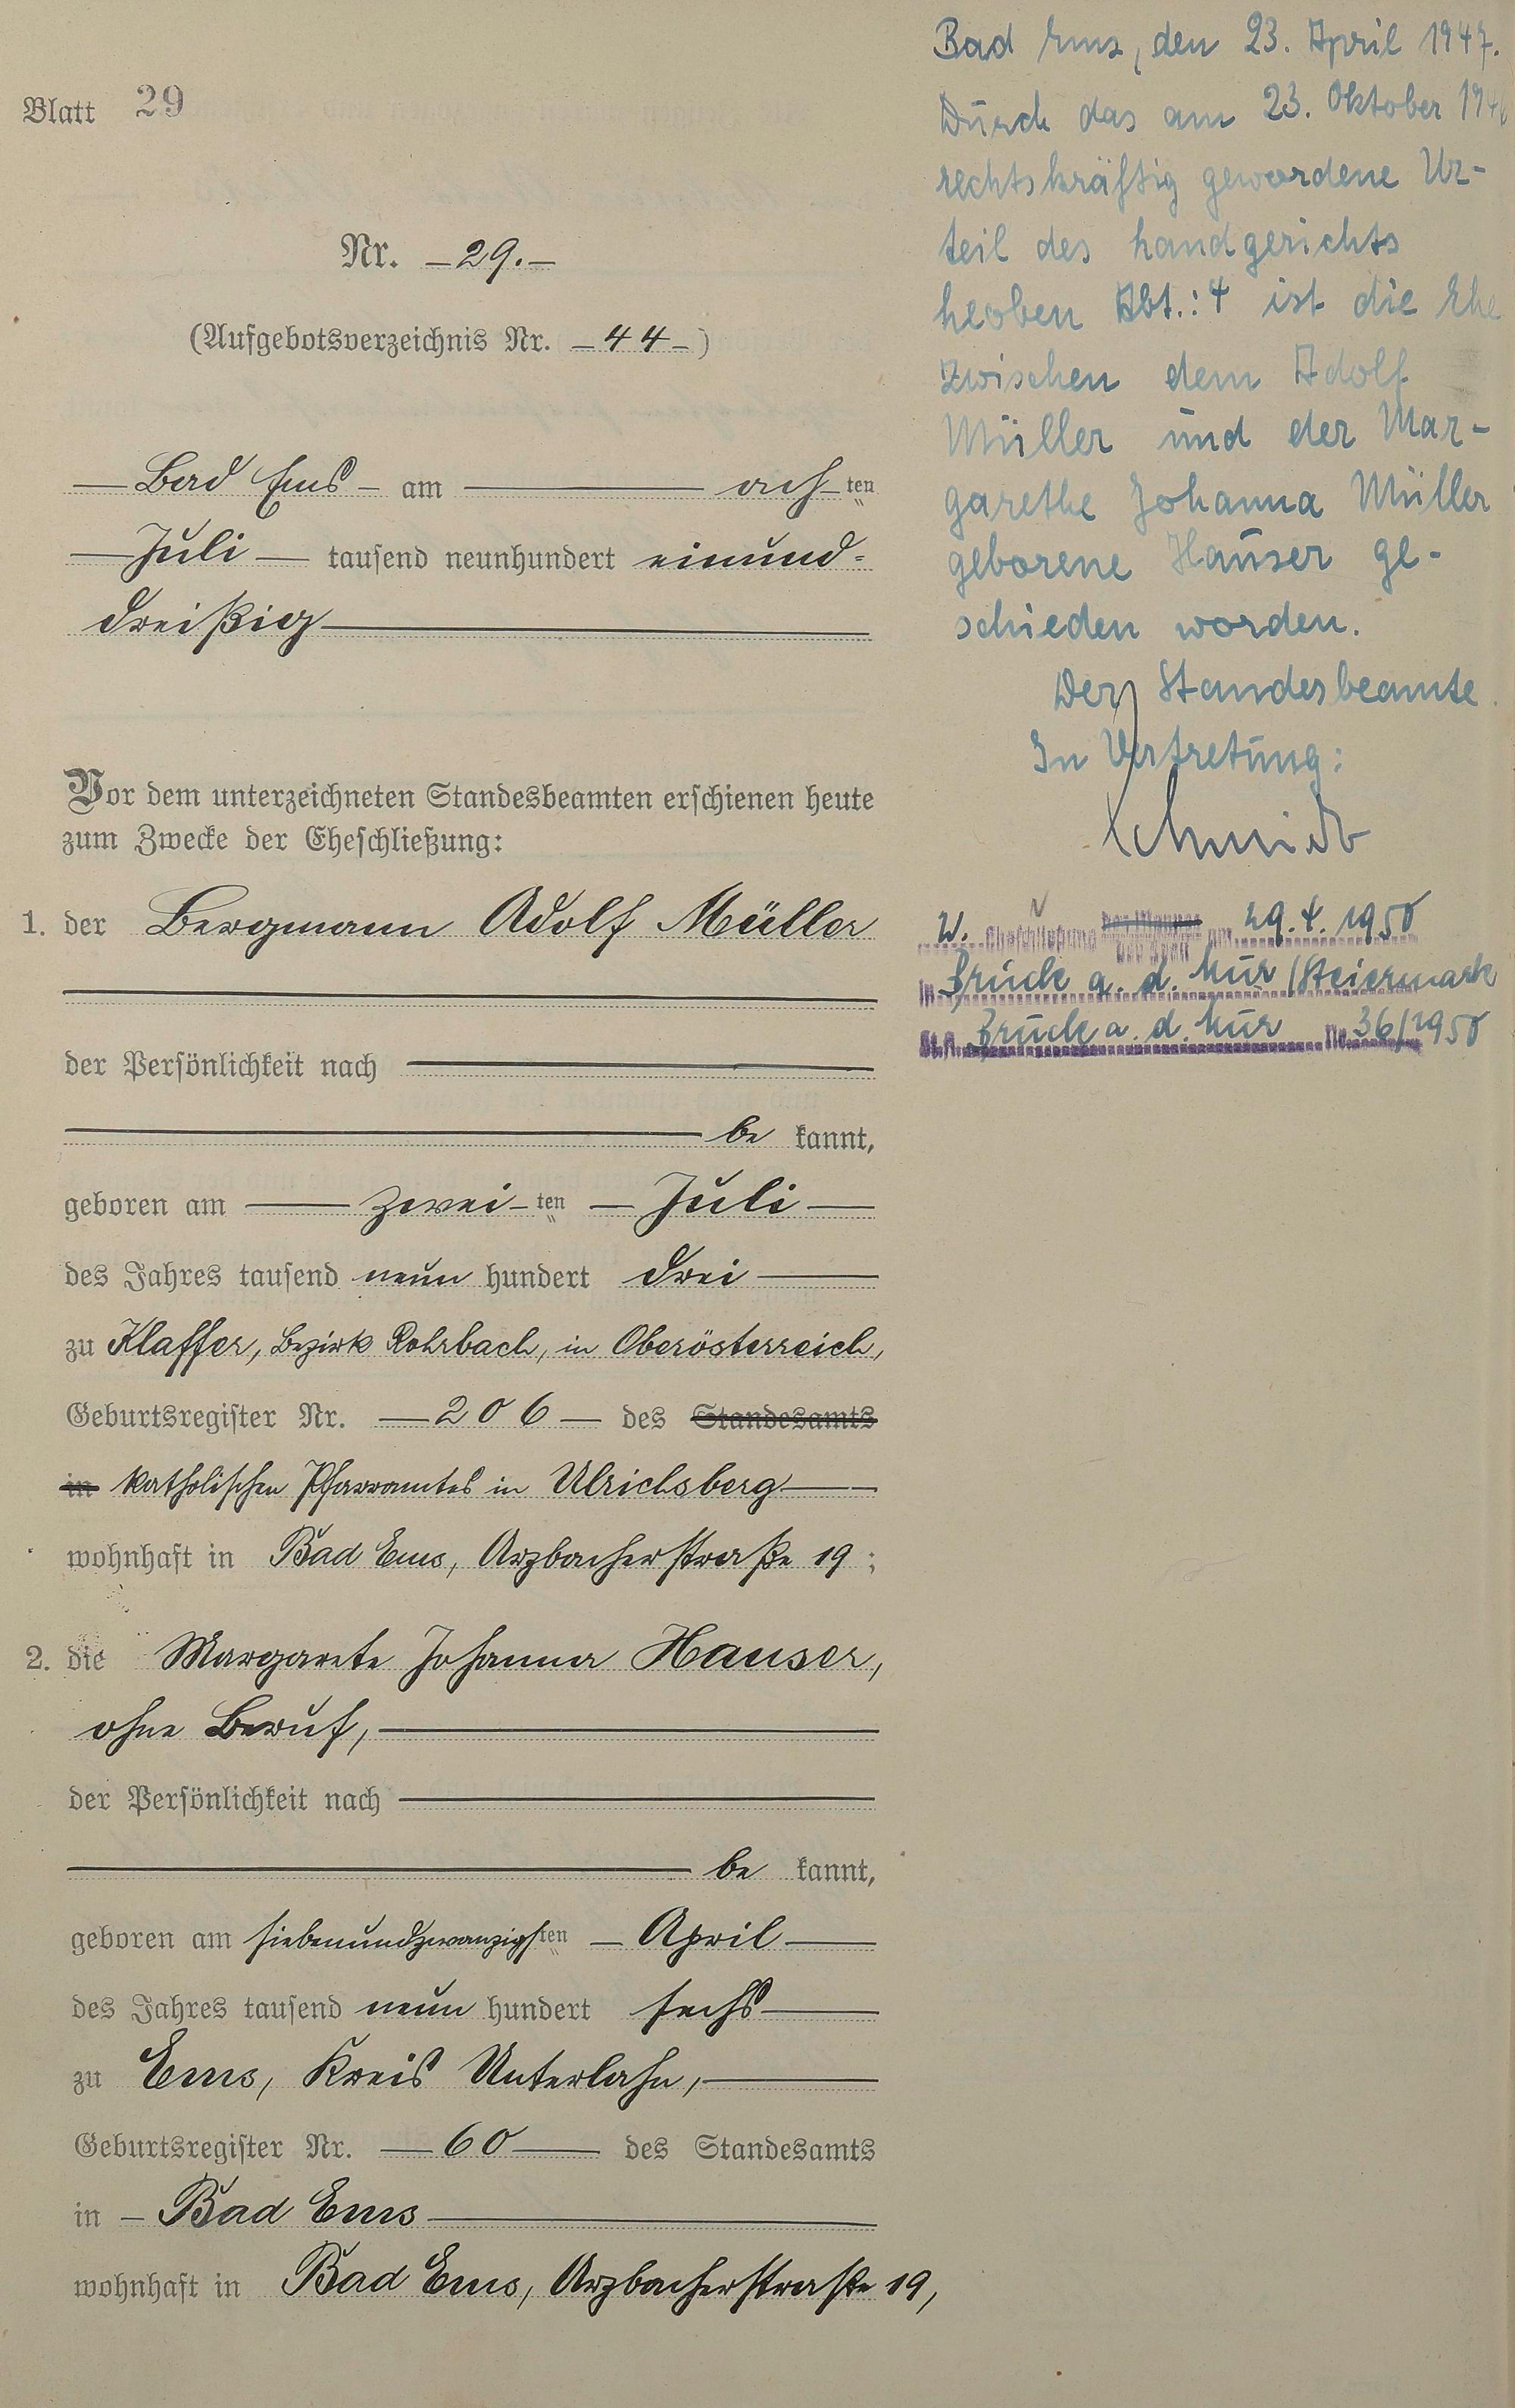 Blatt 29
Nr. – 29. –
(Aufgebotsverzeichnis Nr. – 44 – )
– Bad Ems – am – ach–ten
– Juli – tausend neunhundert einund-
dreißig –
Vor dem unterzeichneten Standesbeamten erschienen heute
zum Zwecke der Eheschließung:
1. der Bergmann Adolf Müller
der Persönlichkeit nach –
– be kannt,
geboren am – zwei–ten – Juli –
des Jahres tausend neun hundert drei –
zu Klaffer, Bezirk Rohrbach, in Oberösterreich,
Geburtsregister Nr. – 206 – des Standesamts
in katholischen Pfarramtes in Ulrichsberg –
wohnhaft in Bad Ems, Arzbacherstraße 19 ;
2. die Margarete Johanna Hauser,
ohne Beruf, –
der Persönlichkeit nach –
– be kannt,
geboren am siebenundzwanzigsten – April –
des Jahres tausend neun hundert sechs –
zu Ems, Kreis Unterlahn, –
Geburtsregister Nr. – 60 – des Standesamts
in – Bad Ems –
wohnhaft in Bad Ems, Arzbacherstraße 19,
Bad Ems, den 23. April 1947.
Durch das am 23. Oktober 1946
rechtskräftig gewordene Ur-
teil des Landgerichts
Leoben Abt.: 4 ist die Ehe
zwischen dem Adolf
Müller und der Mar-
garethe Johanna Müller
geborene Hauser ge-
schieden worden.
Der Standesbeamte.
In Vertretung:
Schmidt
W. Eheschließung des Mannes der Frau am 29.4.1950
in Bruck a. d. Mur / Steiermark
St.A. Bruck a. d. Mur Nr. 36/1950